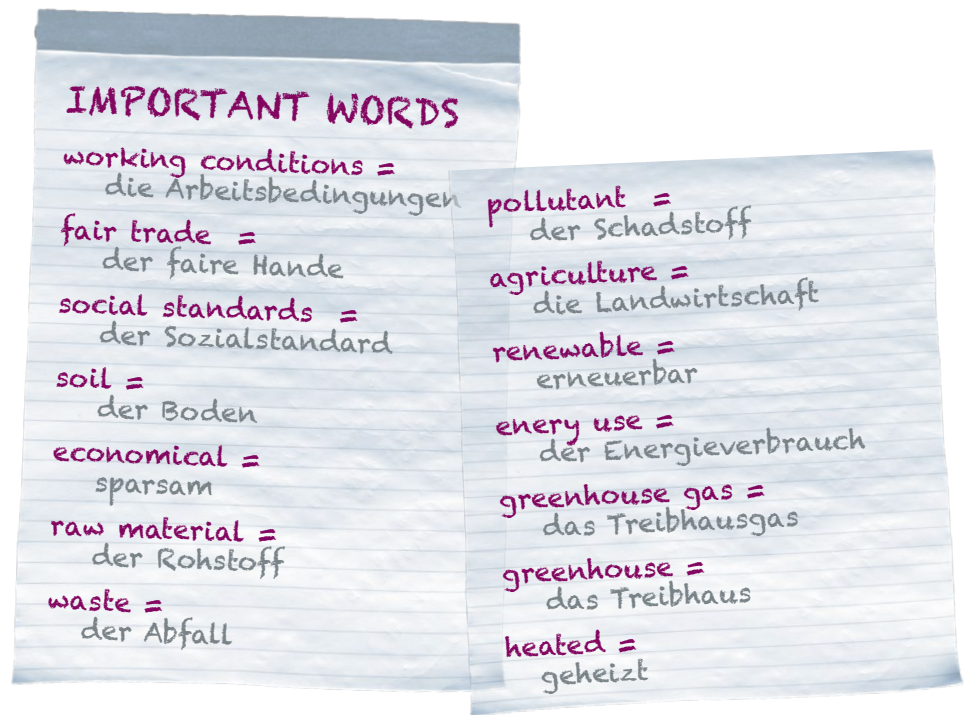 IMPORTANT WORDS
working conditions =
die Arbeitsbedingungen
fair trade =
der faire Hande
social standards =
der Sozialstandard
soil =
der Boden
economical =
sparsam
raw material =
der Rohstoff
waste =
der Abfall
pollutant =
der Schadstoff
agriculture =
die Landwirtschaft
renewable =
erneuerbar
enery use =
der Energieverbrauch
greenhouse gas =
das Treibhausgas
greenhouse =
das Treibhaus
heated =
geheizt